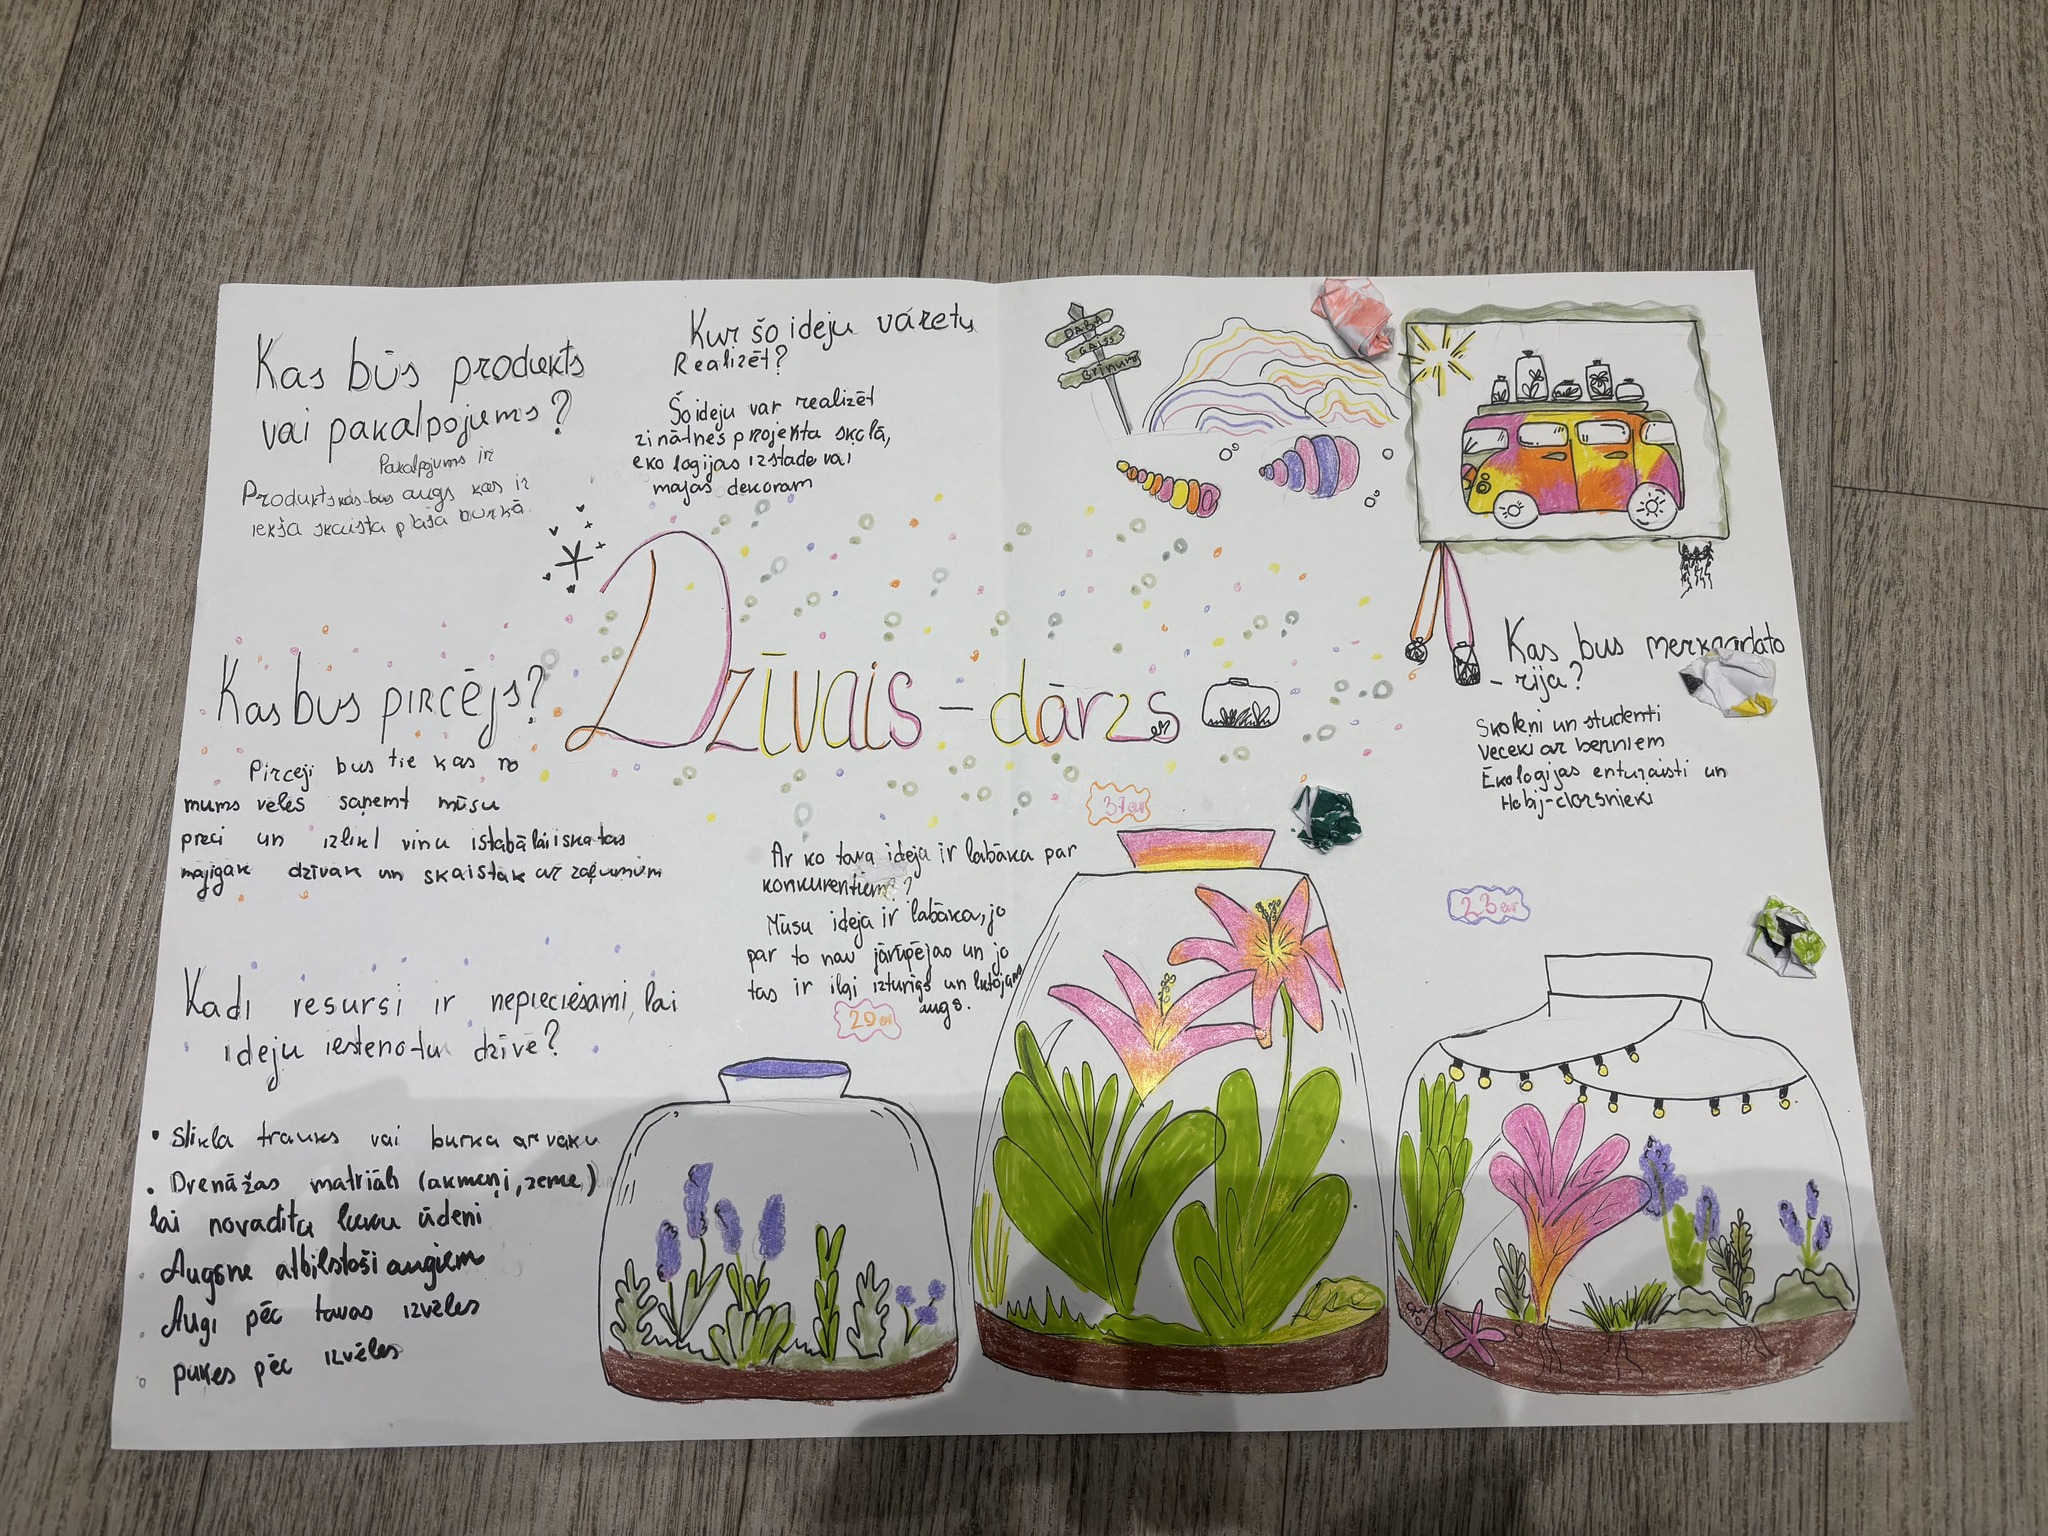 Kas būs produkts
vai pakalpojums?
Pakalpojums ir
Produkts kas bus augs kas ir
iekšā skaista plaša burkā.
Kur šo ideju varetu
Realizēt?
Šo ideju var realizēt
zinātnes projekta skolā,
ekologijas izstade vai
majas dekoram
DABA
GAISS
Brīnums
Kas bus pircējs?
Pirceji bus tie kas no
mums vēlēs saņemt mūsu
preci un izlikt vinu istabā lai iskatas
majīgāk dzīvāk un skaistāk ar zaļumum
Dzīvais-dārzs
Kas bus merkaudito
-rija?
Skolēni un studenti
veceki ar berniem
Ēkologijas enturaisti un
Hobij-dorsnieki
Kadi resursi ir nepieciesami, lai
ideju iestenotu dzīvē?
• Stikla trauks vai burka ar vaku
• Drenāžas matriāls (akmeņi, zeme)
lai novadītu lieku ūdeni
Augsne atbilstoši augiem
Augi pēc tavas izvēles
pukes pēc izvēles
Ar ko tava ideja ir labāka par
konkurentiem?
Mūsu ideja ir labāka, jo
par to nav jārūpējas un jo
tas ir ilgi izturīgs un lutojams
augs.
29 eur
37 eur
23 eur